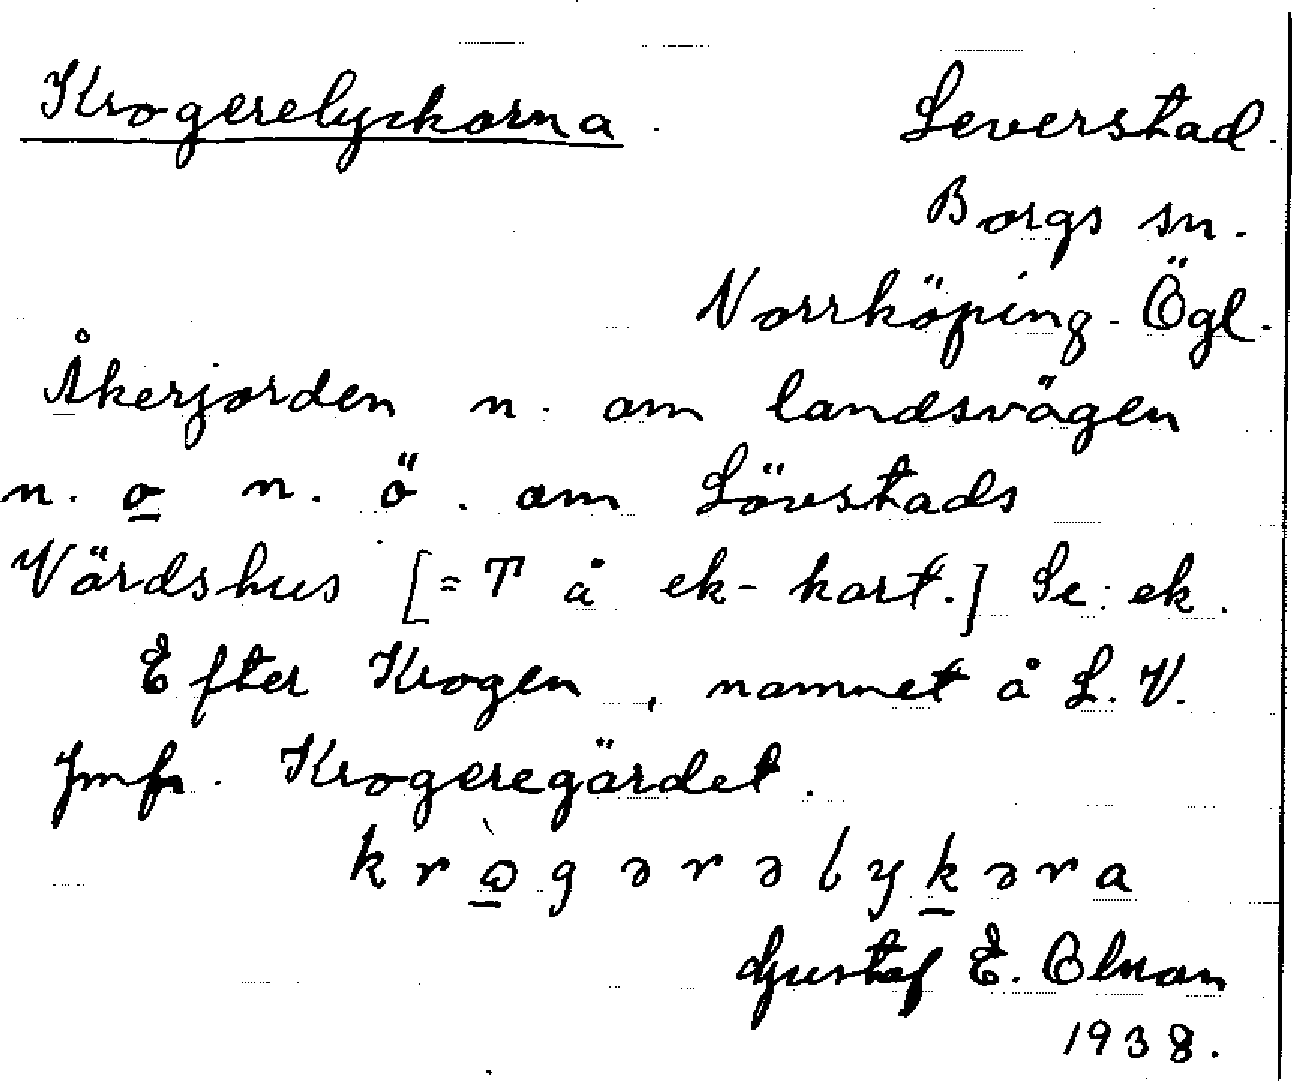 Krogerelyckorna. Leverstad.
Borgs sn.
Norrköping. Ögl.
Åkerjorden n. om landsvägen
n. o n. ö. om Lövstads
Värdshus [= T å ek-kart.] Se: ek.
Efter Krogen, namnet å L. V.
Jmfr. Krogeregärdet.
krɷ̀gərəlykəra
Gustaf E. Olman
1938.